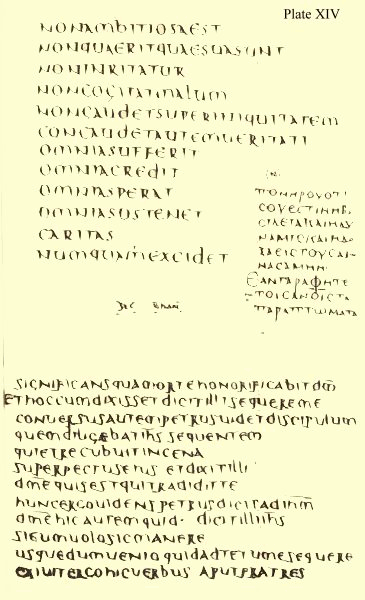 Plate XIV
NONAMBITIOSAEST
NONQUAERITQUAESUASUNT
NONINRITATUR
NONCOGITATMALUM
NONGAUDETSUPERINIQUITATEM
CONGAUDETAUTEMUERITATI
OMNIASUFFERIT
OMNIACREDIT
OMNIASPERAT
OMNIASUSTENET
CARITAS
NUMQUAMEXCIDET
ΠΟΝΗΡΟΥΟΤΙ
CΟΥΕCΤΙΝΗΒΑ
CΙΛΕΙΑΚΑΙΗΔΥ
ΝΑΜΙCΚΑΙΗΔΟ
ΞΑΕΙCΤΟΥCΑΙΩ
ΝΑCΑΜΗΝ
ΕΑΝΓΑΡΑΦΗΤΕ
ΤΟΙCΑΝΟΙCΤΑ
ΠΑΡΑΠΤΩΜΑΤΑ
significansquamortehonorificabitdm̄
Ethoccumdixissetdicitillisequereme
conuersusautempetrusuidetdiscipulum
quemdiligebatih̄s sequentem
quietrecubuitincena
superpectuseius etdixitilli
dm̄equisestquitradiditte
huncergouidenspetrusdicitadih̄m
dm̄ehicautemquid· dicitilliih̄s
sieumuolosicmanere
usquedumuenioquidadtetumesequere
exiuitergohicuerbus aputfratres